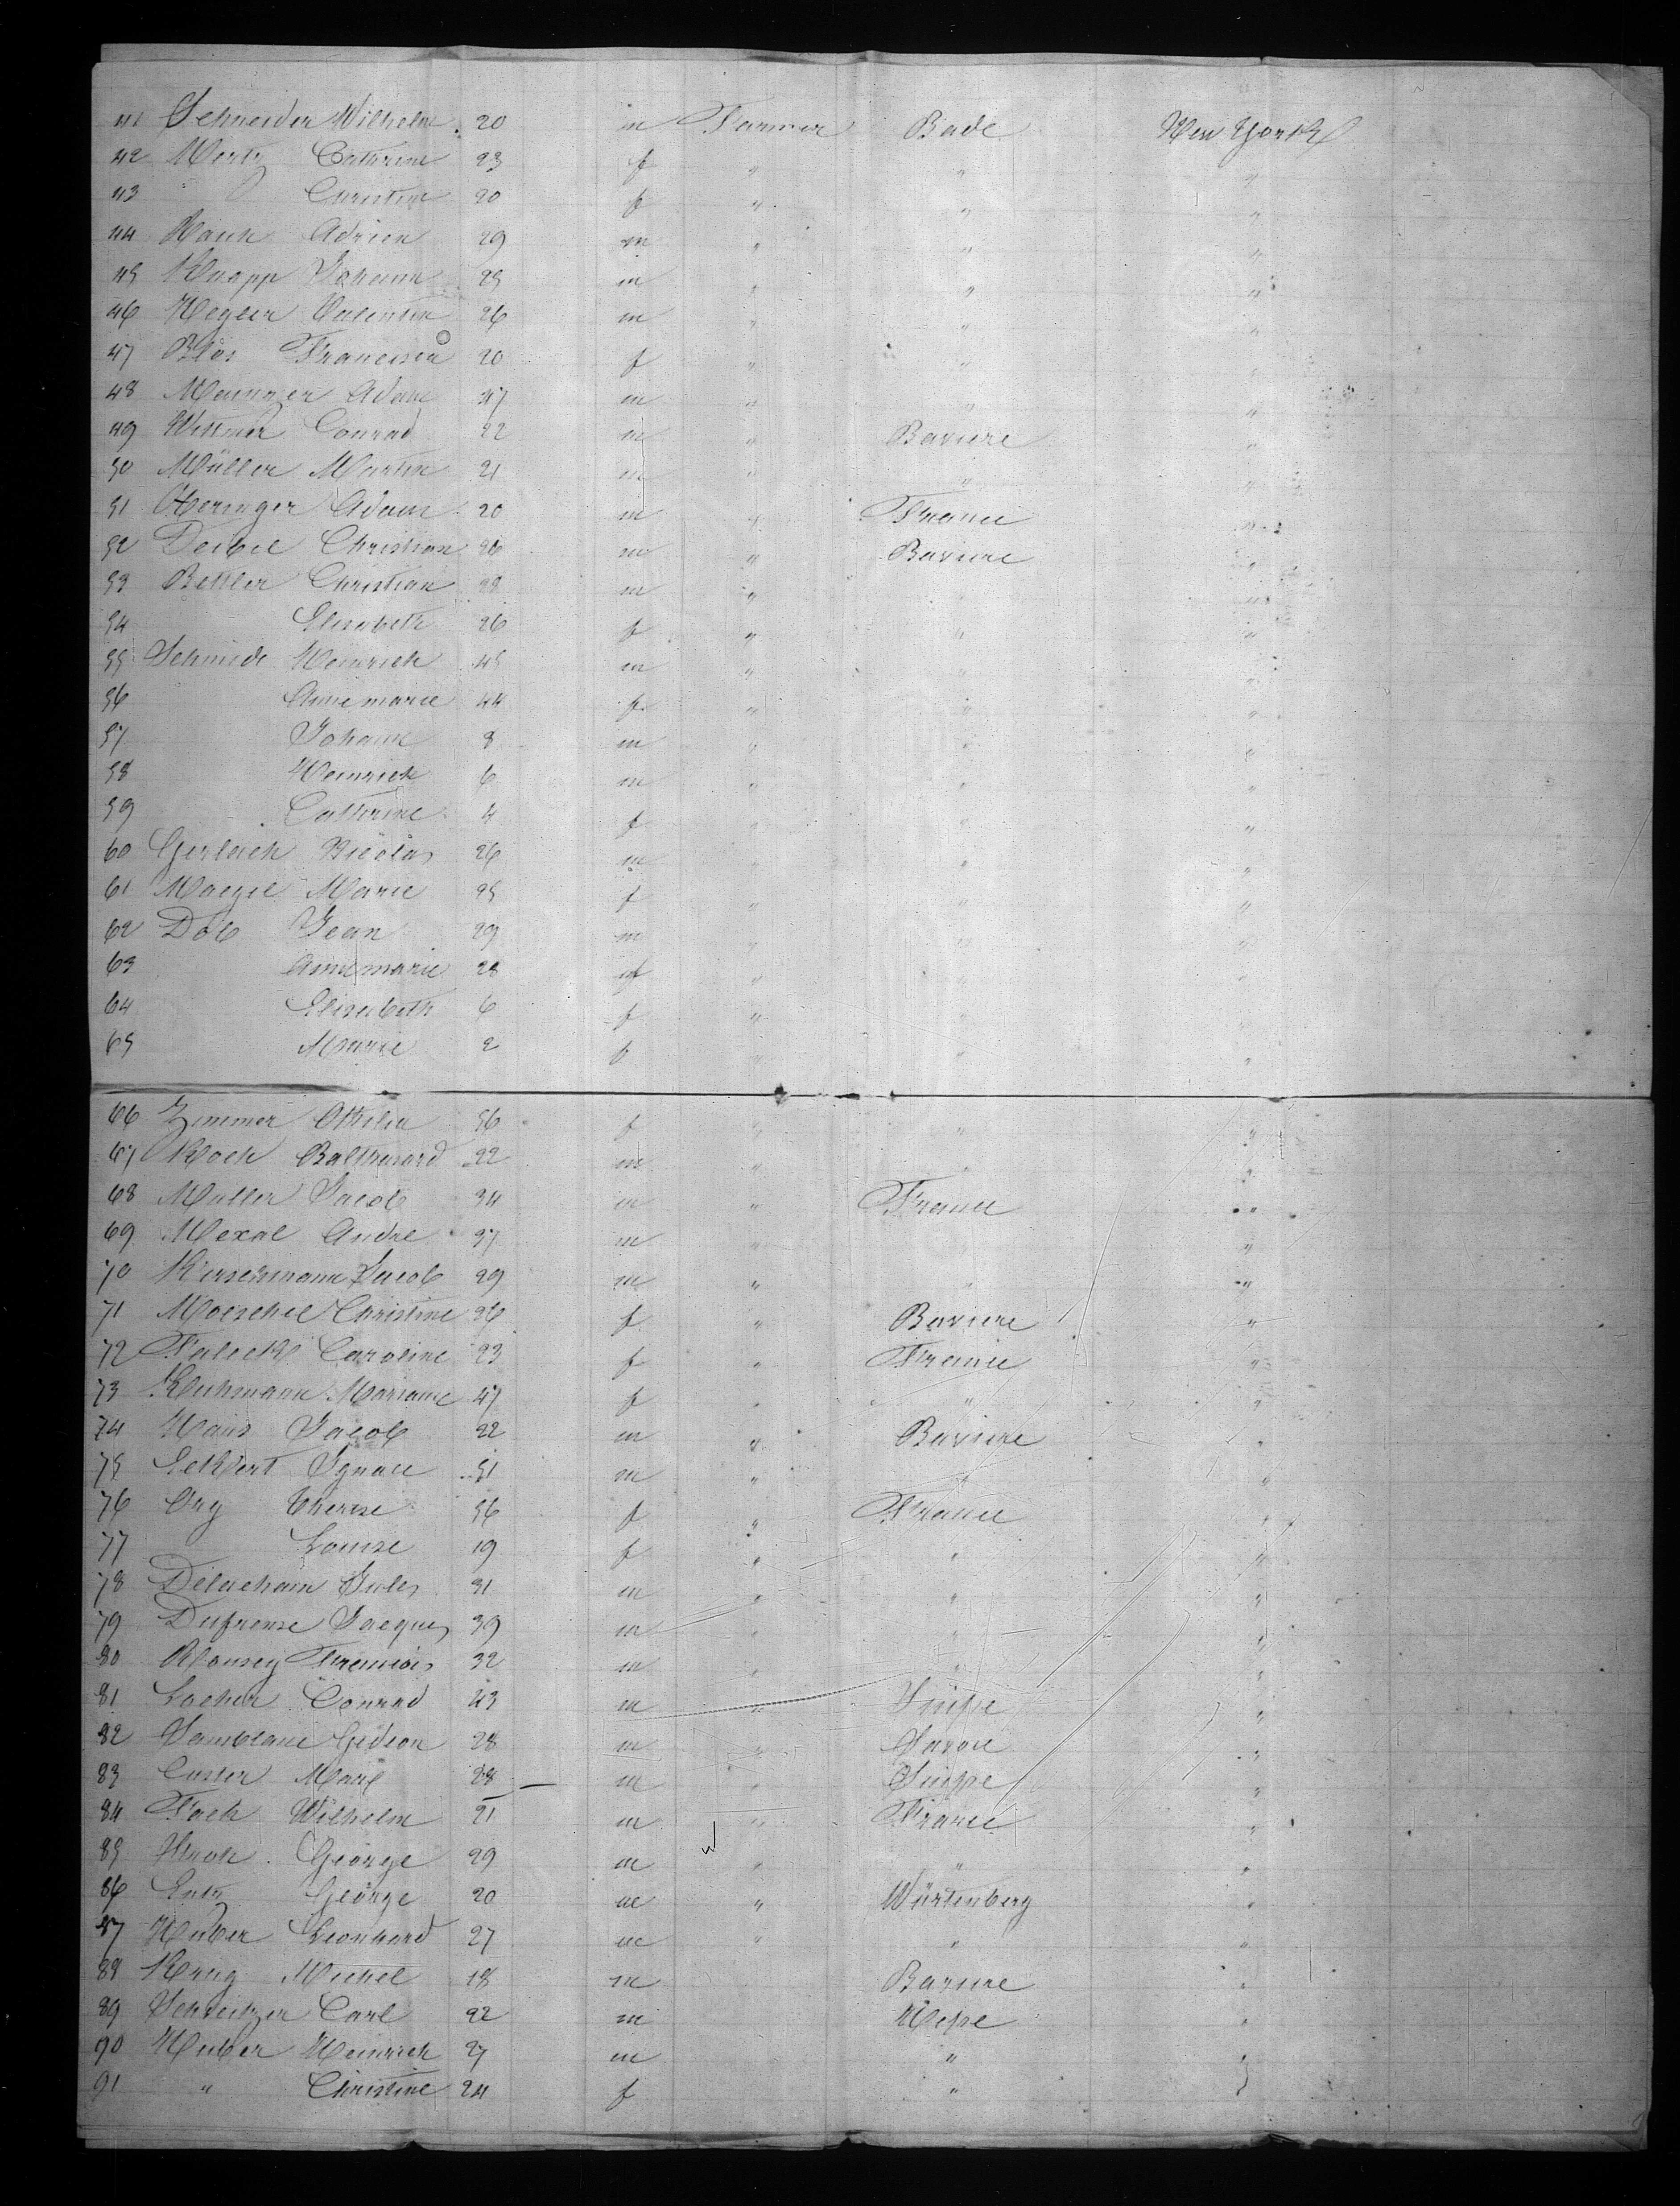 41 Schneider Wilhelm 20 m Farmer Bade New York
42 Mertz Cathrine 23 f " " "
43 " Christine 20 f " " "
44 Hauk Adrien 29 m " " "
45 Knapp Johann 25 m " " "
46 Valentin 26 m " " "
47 Blos Francisca 20 f " " "
48 Adam 47 m " " "
49 Wittmer Conrad 22 m " Baviere "
50 Müller Martin 21 m " " "
51 Adam 20 m " France "
52 Christian 26 m " Baviere "
53 Bettler Christian m " "
54 Elisabeth 26 f " " "
55 Schmidt Heinrich 45 m " "
56 Annemarie 44 f " " "
57 Johann 8 m " " "
58 Heinrich 6 m " " "
59 Catherine 4 f " " "
60 Gerlach Nicolas 26 m " " "
61 Marie 25 f " " "
62 Dob Jean 29 m " " "
63 Annemarie 28 f " " "
64 Elisabeth 6 f " " "
65 Marie 2 f " " "
66 Zimmer Ottilia 56 f " " "
67 Koch 22 m " " "
68 Muller Jacob 34 m " France "
69 Mexal Andre 37 m " "
70 Jacob 29 m " " "
71 Moeschel Christine 26 f " Baviere "
72 Caroline 23 f " France "
73 Mariane 47 f " " "
74 Haus Jacob 22 m " Baviere "
75 Ignace 51 m " " "
76 Ory Therese 56 f " France "
77 Louise 19 f " " "
78 Jules 31 m " " "
79 Dufresne Jacques 39 m " " "
80 Francois 32 m " " "
81 Locher Conrad 43 m " Suisse "
82 Gedeon 28 m " Savoie "
83 Custer 28 m " Suisse "
84 Foch Wilhelm 21 m " France "
85 George 29 m " " "
86 Entz George 20 m " Würtenberg "
87 Huber Leonhard 27 m " " "
88 Krug Michel 18 m Baviere "
89 Schweitzer Carl 22 m Hesse "
90 Huber Heinrich 27 m " "
91 " Christine 24 f " "